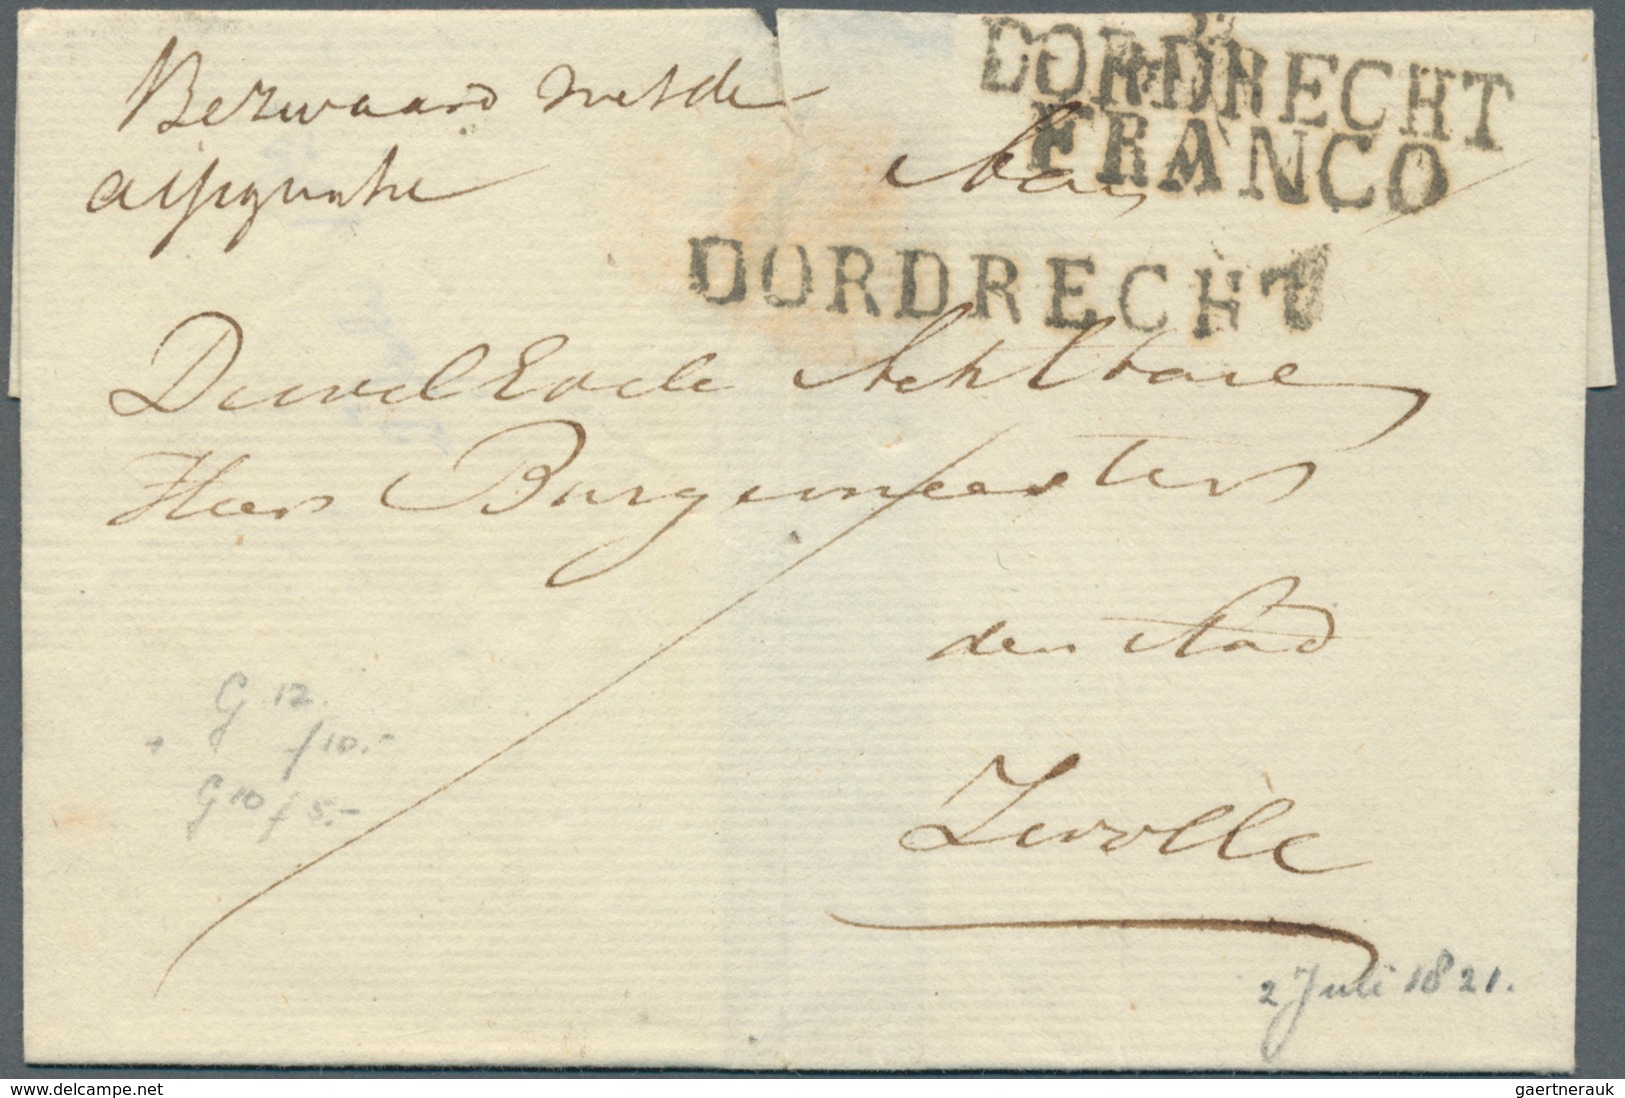 DORDRECHT
FRANCO
Bezwaard met de
Aan
DORDRECHT
Den Wel Edele Achtbare
Heer Burgemeester
der Stad
Zwolle
G 12.
f 10.-
G 10 f 5.-
2 Juli 1821.
delcampe.net
gaertnerauk